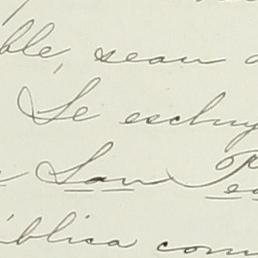 ble, sean
Se eschuy
San Pe
ública com